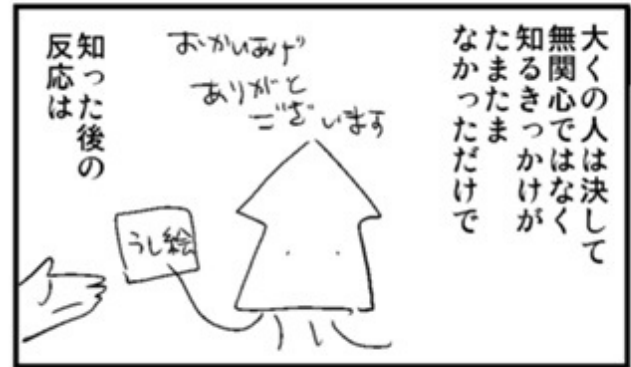 大くの人は決して
無関心ではなく
知るきっかけが
たまたま
なかっただけで
おかいあげ
ありがと
ございます
うし絵
知った後の
反応は